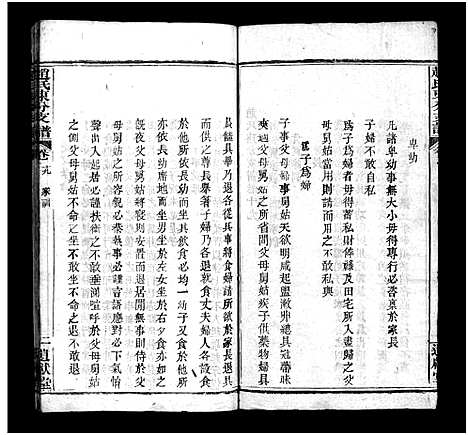 卑幼
凡諸卑幼事無大小毋得專行必咨稟於家長
子婦不敢自私
爲子爲婦者毋得蓄私財俸祿及田宅所入盡歸之父
母舅姑當用則請而用之不敢私與
爲子爲婦
子事父母婦事舅姑天欲明咸起盥漱櫛總具冠帶昧
爽適父母舅姑之所省問父母舅姑疾子供藥物婦具
晨羞具畢乃退各從其事將食婦請所欲於家長退具
而供之尊長舉箸子婦乃各退就食丈夫婦人各設食
於他所依長幼而坐其飲食必均一幼子又食於他所
亦依長幼席地而坐男坐於左女坐於右夕食亦然
既夜父母舅姑將寢則安置而退居閒無事則侍於父
母舅姑之所容貌必恭執事必謹言語應對必下氣怡
聲出入起居必謹扶衛之不敢涕唾喧呼於父母舅姑
之側父母舅姑不命之坐不敢坐不命之退不敢退
趙氏東分支譜
卷九
家訓
二